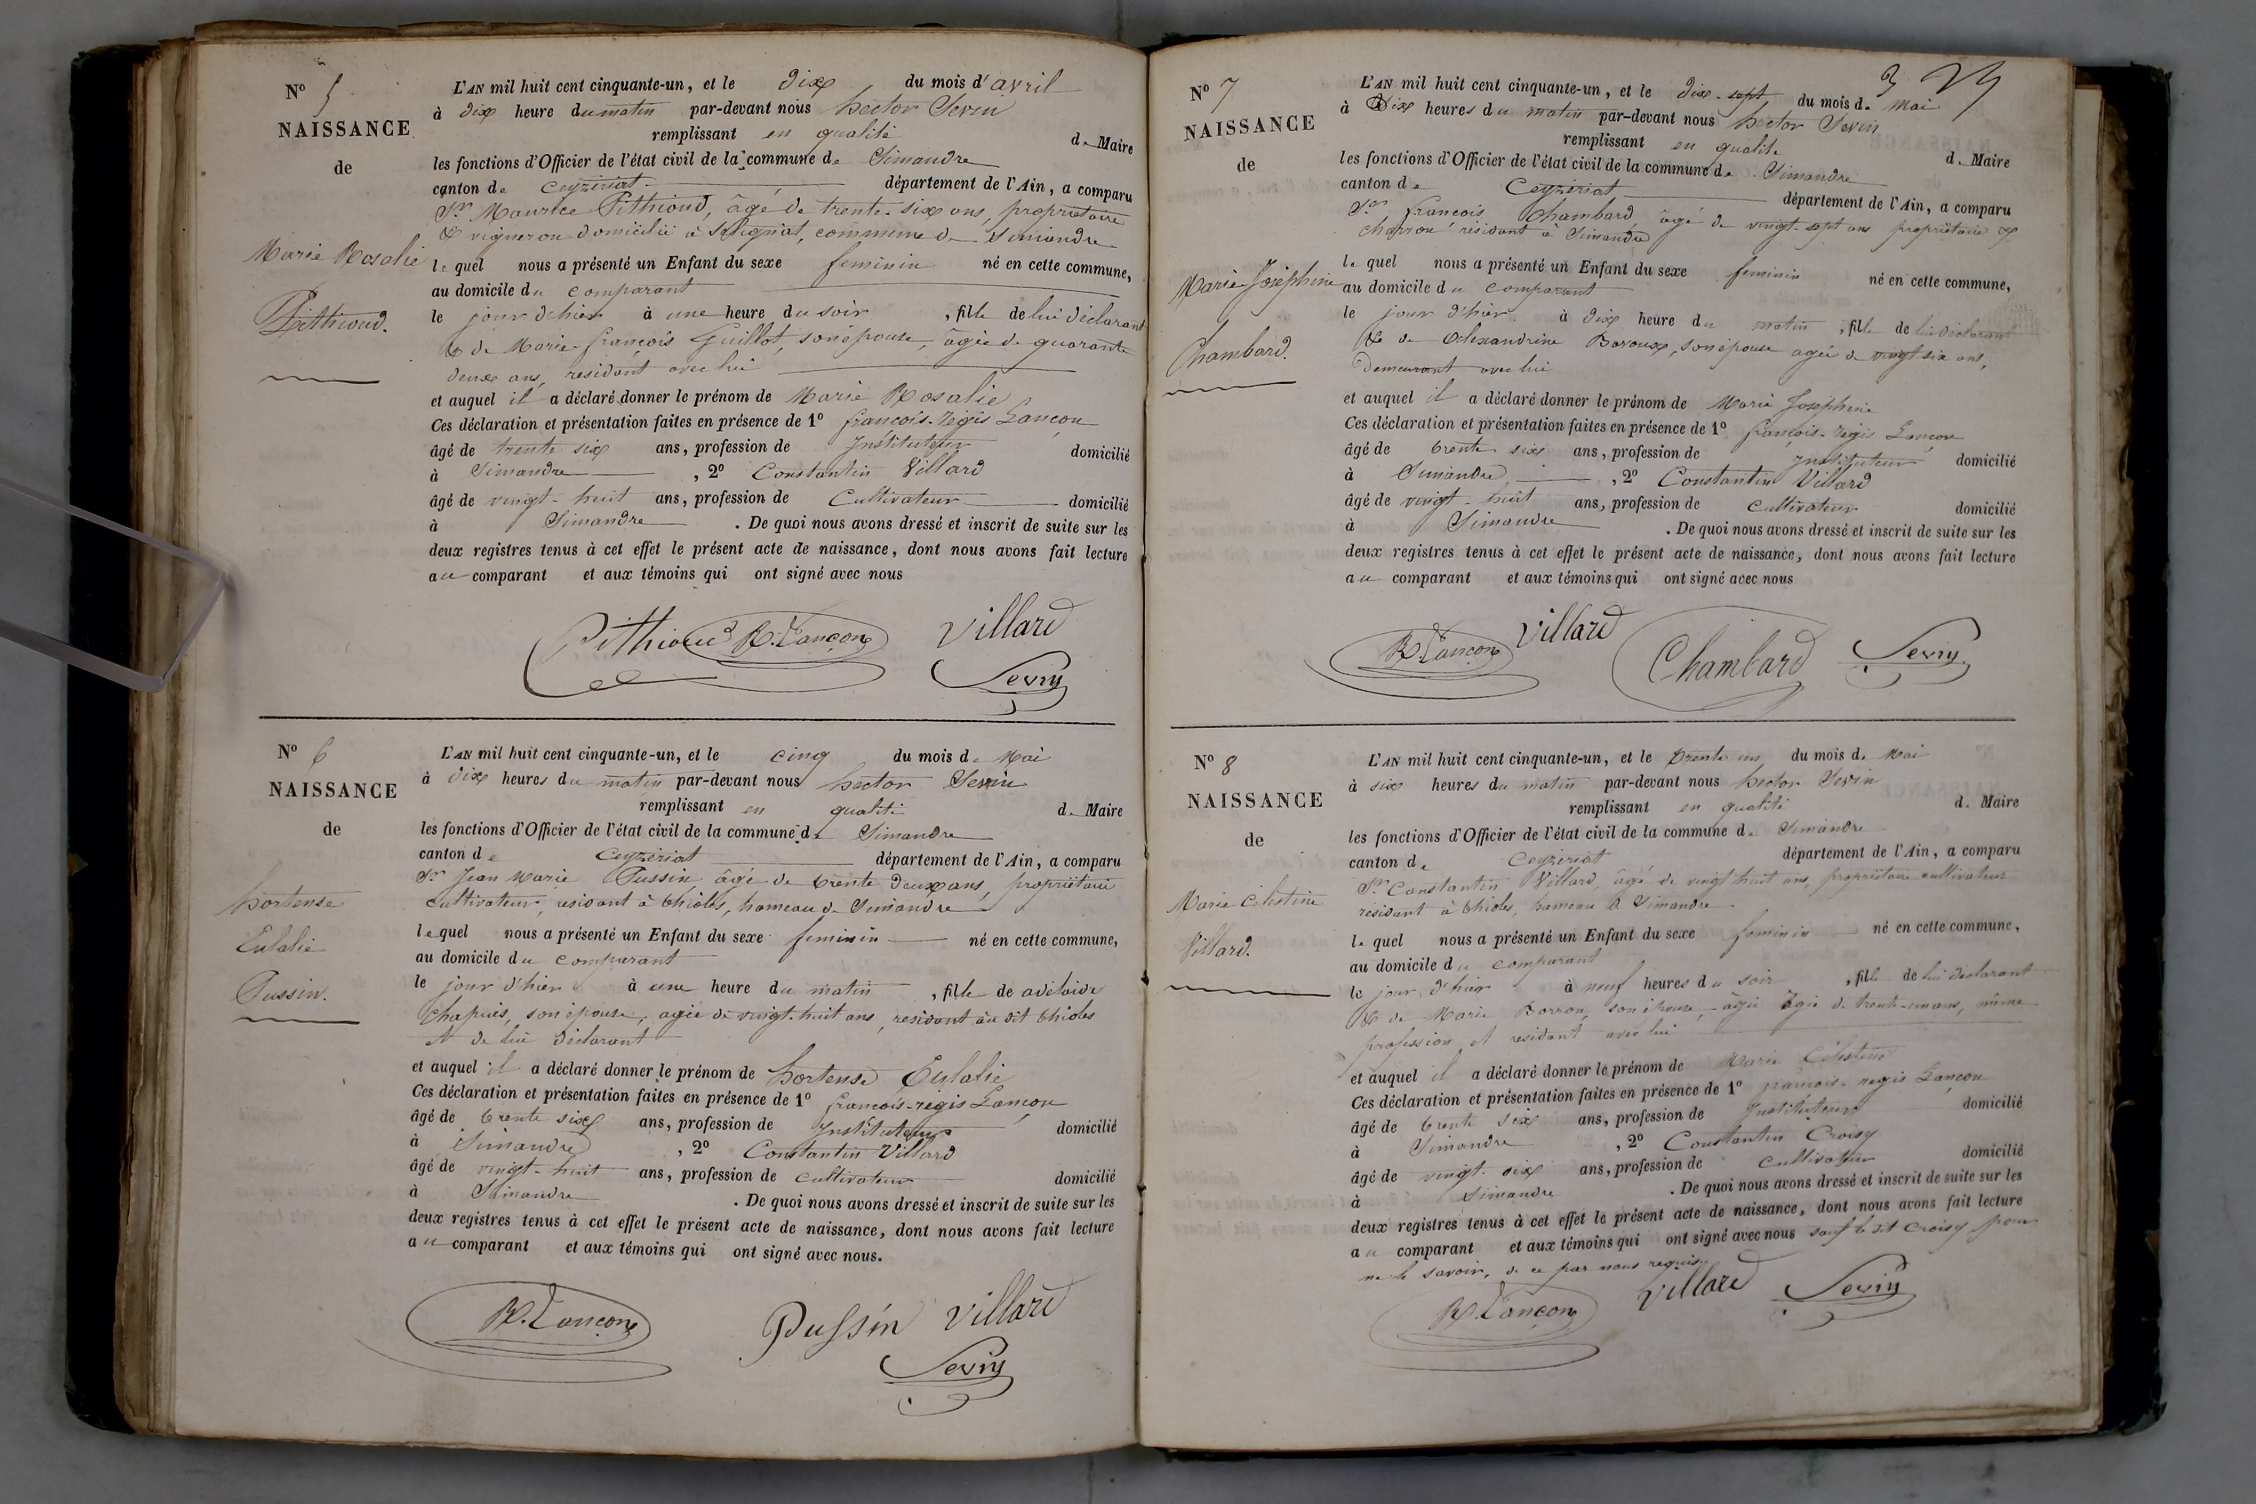 Nº 5
NAISSANCE
de
Marie Rosalie
Pithioud.
L'AN mil huit cent cinquante-un, et le dix du mois d'avril
à dix heure du matin par-devant nous hector Sevin
remplissant en qualité de Maire
les fonctions d'Officier de l'état civil de la commune de Simandre
canton de Ceyzériat département de l'Ain, a comparu
Sr Maurice Pithioud, âgé de trente-six ans, propriétaire
& vigneron domicilié à Rhignat, commune de Simandre
lequel nous a présenté un Enfant du sexe feminin né en cette commune,
au domicile du comparant
le jour d'hier à une heure du soir, fille de lui déclarant
& de Marie françois Guillot, son épouse, âgée de quarante
deux ans, résidant avec lui
et auquel il a déclaré donner le prénom de Marie Rosalie
Ces déclaration et présentation faites en présence de 1º françois-régis Lançon
âgé de trente six ans, profession de Instituteur domicilié
à Simandre, 2º Constantin Villard
âgé de vingt-huit ans, profession de Cultivateur domicilié
à Simandre. De quoi nous avons dressé et inscrit de suite sur les
deux registres tenus à cet effet le présent acte de naissance, dont nous avons fait lecture
au comparant et aux témoins qui ont signé avec nous
Pithioud R. Lançon Villard
Sevin
Nº 6
NAISSANCE
de
hortense
Eulalie
Pussin.
L'AN mil huit cent cinquante-un, et le cinq du mois de Mai
à dix heures du matin par-devant nous hector Sevin
remplissant en qualité de Maire
les fonctions d'Officier de l'état civil de la commune de Simandre
canton de Ceyzériat département de l'Ain, a comparu
Sr Jean Marie Pussin âgé de trente deux ans, propriétaire
cultivateur, résidant à thioles, hameau de Simandre
lequel nous a présenté un Enfant du sexe feminin né en cette commune,
au domicile du comparant
le jour d'hier à une heure du matin, fille de adélaïde
Chapuis, son épouse, agée de vingt-huit ans, résidant au dit thioles
et de lui déclarant
et auquel il a déclaré donner le prénom de hortense Eulalie
Ces déclaration et présentation faites en présence de 1º françois-régis Lançon
âgé de trente six ans, profession de Instituteur domicilié
à Simandre, 2º Constantin Villard
âgé de vingt-huit ans, profession de cultivateur domicilié
à Simandre. De quoi nous avons dressé et inscrit de suite sur les
deux registres tenus à cet effet le présent acte de naissance, dont nous avons fait lecture
au comparant et aux témoins qui ont signé avec nous.
R. Lançon Pussin Villard
Sevin
Nº 7
NAISSANCE
de
Marie Joséphine
Chambard.
3
L'AN mil huit cent cinquante-un, et le dix-sept du mois de Mai
à Dix heures du matin par-devant nous hector Sevin
remplissant en qualité de Maire
les fonctions d'Officier de l'état civil de la commune de Simandre
canton de Ceyzériat département de l'Ain, a comparu
Sr françois Chambard âgé de vingt-sept ans propriétaire &
charron résidant à Simandre
lequel nous a présenté un Enfant du sexe feminin né en cette commune,
au domicile du comparant
le jour d'hier à dix heure du matin, fille de lui déclarant
& de Alexandrine Baroux, son épouse agée de vingt six ans,
demeurant avec lui
et auquel il a déclaré donner le prénom de Marie Joséphine
Ces déclaration et présentation faites en présence de 1º françois-régis Lançon
âgé de trente six ans, profession de Instituteur domicilié
à Simandre, 2º Constantin Villard
âgé de vingt-huit ans, profession de cultivateur domicilié
à Simandre. De quoi nous avons dressé et inscrit de suite sur les
deux registres tenus à cet effet le présent acte de naissance, dont nous avons fait lecture
au comparant et aux témoins qui ont signé avec nous
R. Lançon Villard Chambard Sevin
Nº 8
NAISSANCE
de
Marie Célestine
Villard.
L'AN mil huit cent cinquante-un, et le trente un du mois de Mai
à six heures du matin par-devant nous hector Sevin
remplissant en qualité de Maire
les fonctions d'Officier de l'état civil de la commune de Simandre
canton de Ceyzériat département de l'Ain, a comparu
Sr Constantin Villard, âgé de vingt huit ans, propriétaire cultivateur
résidant à thioles, hameau de Simandre
lequel nous a présenté un Enfant du sexe feminin né en cette commune,
au domicile du comparant
le jour d'hier à neuf heures du soir, fille de lui déclarant
& de Marie Borron, son épouse, âgée de trente-un ans, même
profession et résidant avec lui
et auquel il a déclaré donner le prénom de Marie Célestine
Ces déclaration et présentation faites en présence de 1º françois-régis Lançon
âgé de trente six ans, profession de Instituteur domicilié
à Simandre, 2º Constantin Croisy
âgé de vingt-six ans, profession de cultivateur domicilié
à Simandre. De quoi nous avons dressé et inscrit de suite sur les
deux registres tenus à cet effet le présent acte de naissance, dont nous avons fait lecture
au comparant et aux témoins qui ont signé avec nous sauf le dit Croisy pour
ne le savoir, de ce par nous requis
R. Lançon Villard Sevin